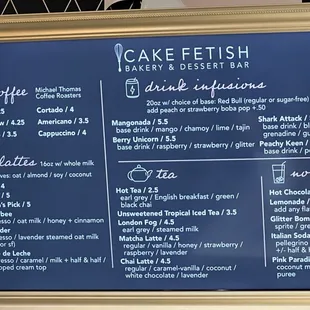 CAKE FETISH
BAKERY & DESSERT BAR
Michael Thomas
Coffee Roasters
4.25
Cortado / 4
/ 4.25
Americano / 3.5
/ 3.5
Cappuccino / 4
lattes 16oz w/ whole milk
oat / almond / soy / coconut
/ 4
/ 5
Pick / 5
/ oat milk / honey + cinnamon
/ lavender steamed oat milk
or sf)
de Leche
/ caramel / milk + half & half /
cream top
drink infusions
20oz w/ choice of base: Red Bull (regular or sugar-free)
add peach or strawberry boba pop +.50
Mangonada / 5.5
base drink / mango / chamoy / lime / tajin
Berry Unicorn / 5.5
base drink / raspberry / strawberry / glitter
Shark Attack /
base drink / bl
grenadine / gu
Peachy Keen /
base drink / pe
tea
Hot Tea / 2.5
earl grey / English breakfast / green /
black chai
Unsweetened Tropical Iced Tea / 3.5
London Fog / 4.5
earl grey / steamed milk
Matcha Latte / 4.5
regular / vanilla / honey / strawberry /
raspberry / lavender
Chai Latte / 4.5
regular / caramel-vanilla / coconut /
white chocolate / lavender
no
Hot Chocola
Lemonade /
add any fla
Glitter Bom
sprite / gre
Italian Soda
pellegrino
+/- half & h
Pink Paradi
coconut m
puree